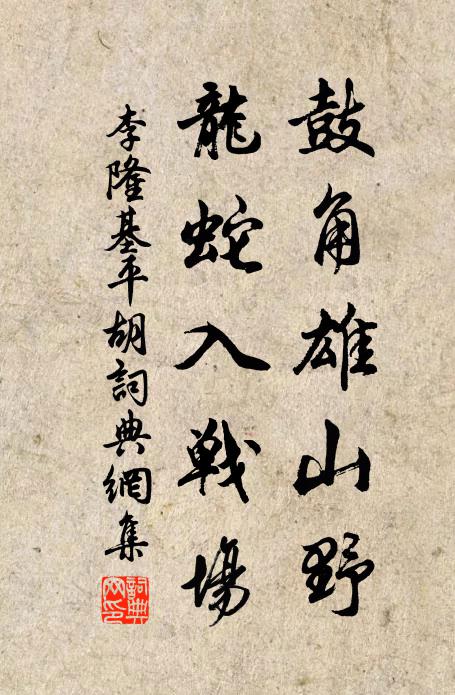 鼓角雄山野
龍蛇入戰場
李隆基平胡詞典網集
詞典網印